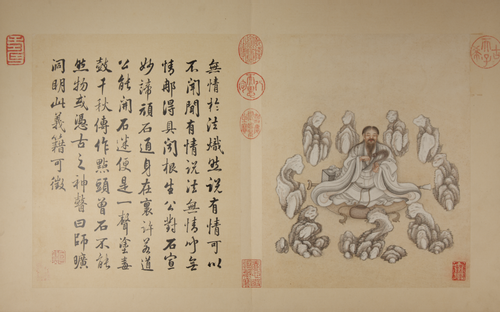 無情於法熾然說有情可以
不聞聞有情說法無情
情那得具聞根生公對石宣
妙諦頑石身在裏許若道
公能開石迷便是一聲塗毒
鼓千秋傳作點頭曾石不能
然物或憑古之神瞽曰師曠
洞明此義籍可徵